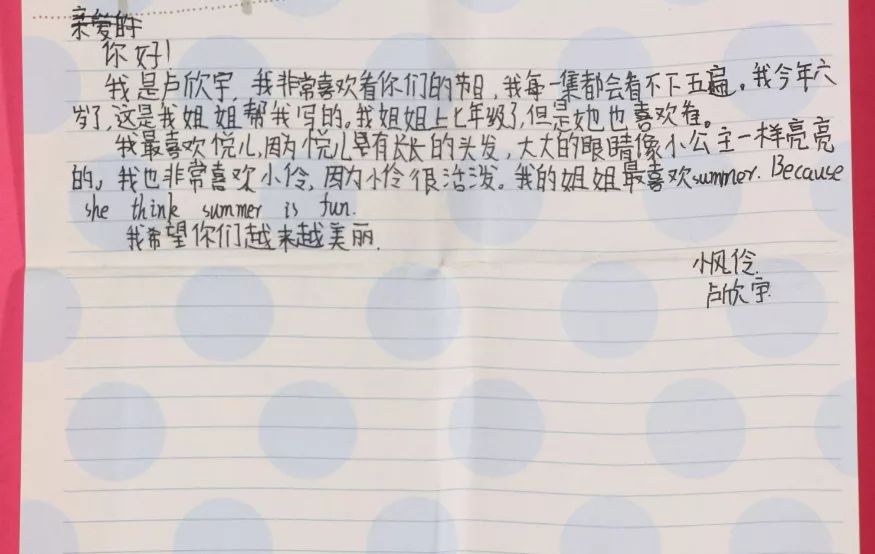 亲爱的
你好!
我是卢欣宇,我非常喜欢看你们的节目,我每一集都会看不下五遍。我今年六
岁了,这是我姐姐帮我写的。我姐姐上七年级了,但是她也喜欢看。
我最喜欢悦儿,因为悦儿是有长长的头发,大大的眼睛像小公主一样亮亮
的。我也非常喜欢小伶,因为小伶很活泼。我的姐姐最喜欢summer. Because
she think summer is fun.
我希望你们越来越美丽.
小风伶.
卢欣宇